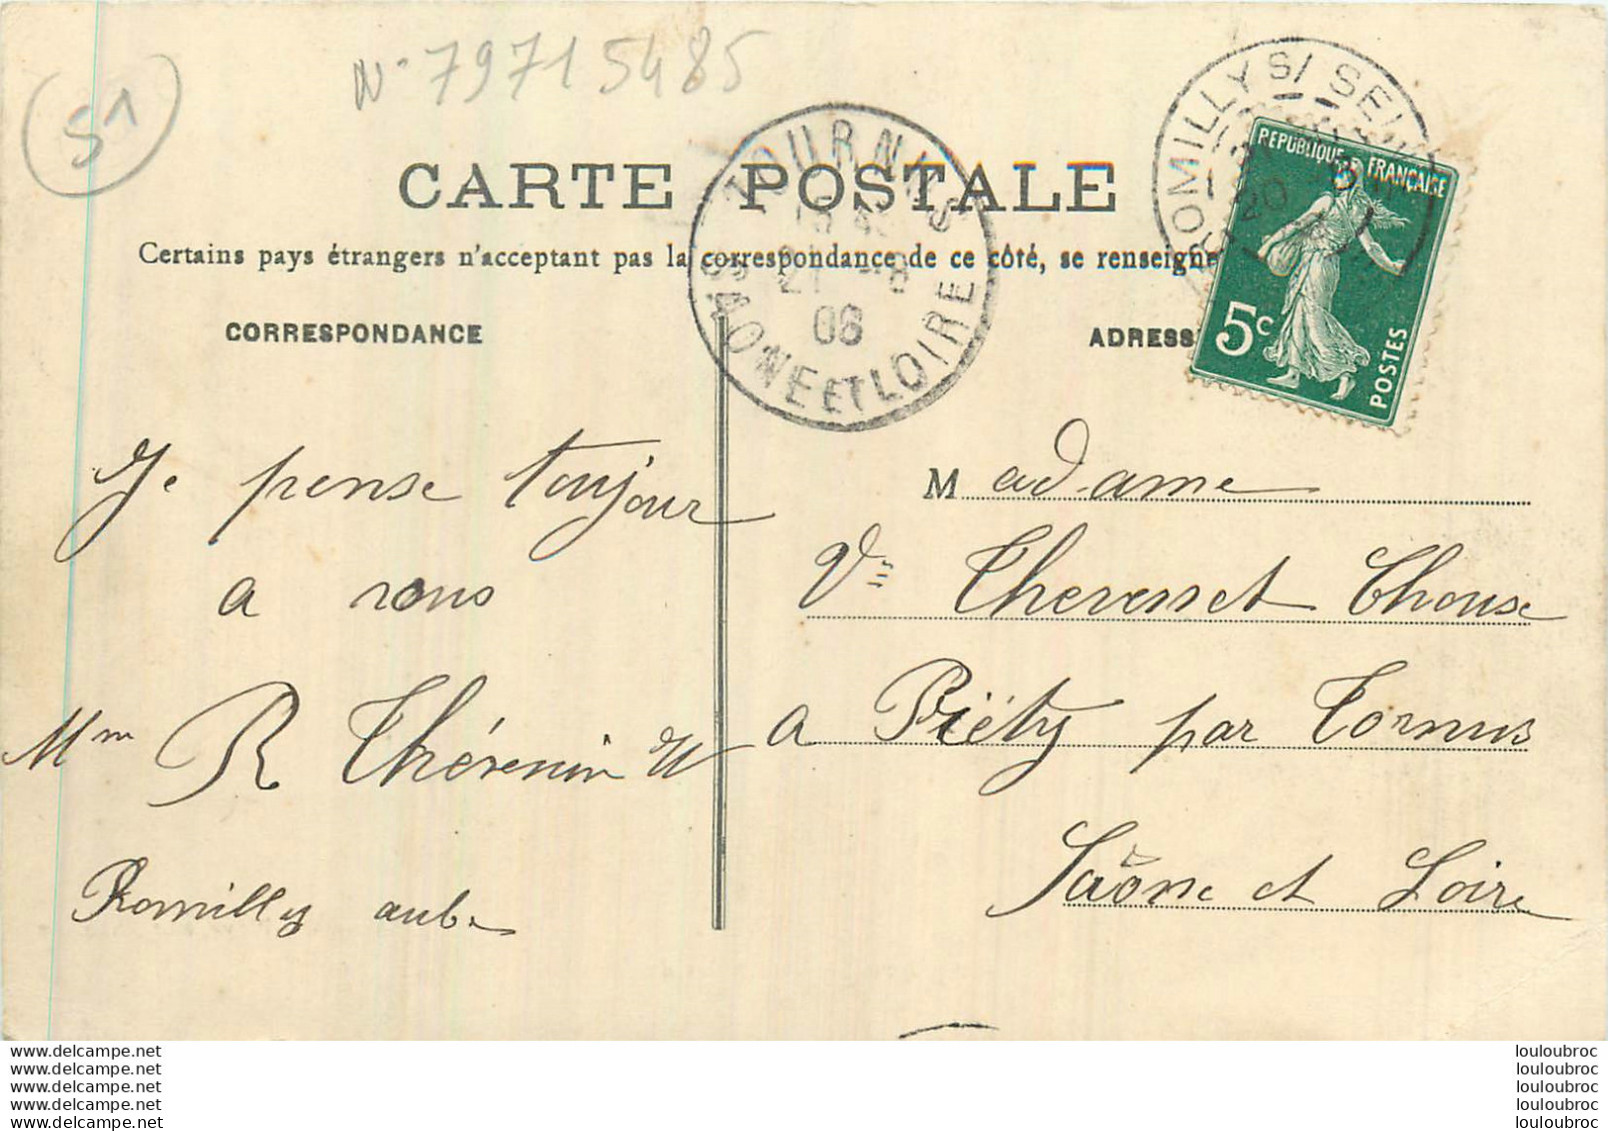 51
N° 79715485
CARTE POSTALE
Certains pays étrangers n'acceptant pas la correspondance de ce côté, se renseigne
CORRESPONDANCE
ADRESS
TOURNUS
21 -8
08
SAONE ET LOIRE
ROMILLY S/ SEI
20
REPUBLIQUE FRANÇAISE
5c
POSTES
Je pense toujour
a vous
Mme R Thévenin
Romilly aube
Madame
Vve Thevenet Chouse
a Préty par Tornus
Saône et Loire
www.delcampe.net
www.delcampe.net
www.delcampe.net
www.delcampe.net
www.delcampe.net
louloubroc
louloubroc
louloubroc
louloubroc
louloubroc